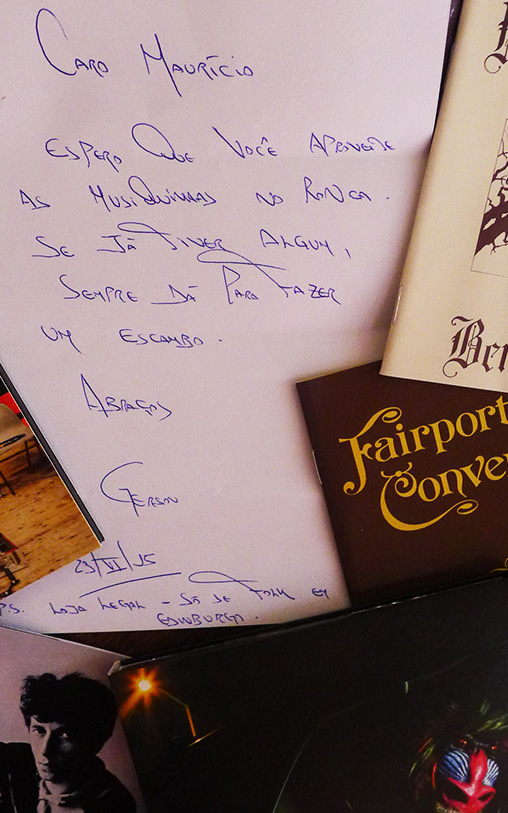 Caro Maurício
Espero que você aproveite
as musiquinhas no Ronca.
Se já tiver algum,
sempre dá para fazer
um escambo.
Abraços
Gerson
23/VI/15
P.S. Loja legal - só de folk em
Edinburgo.
Ber
Fairport
Conve